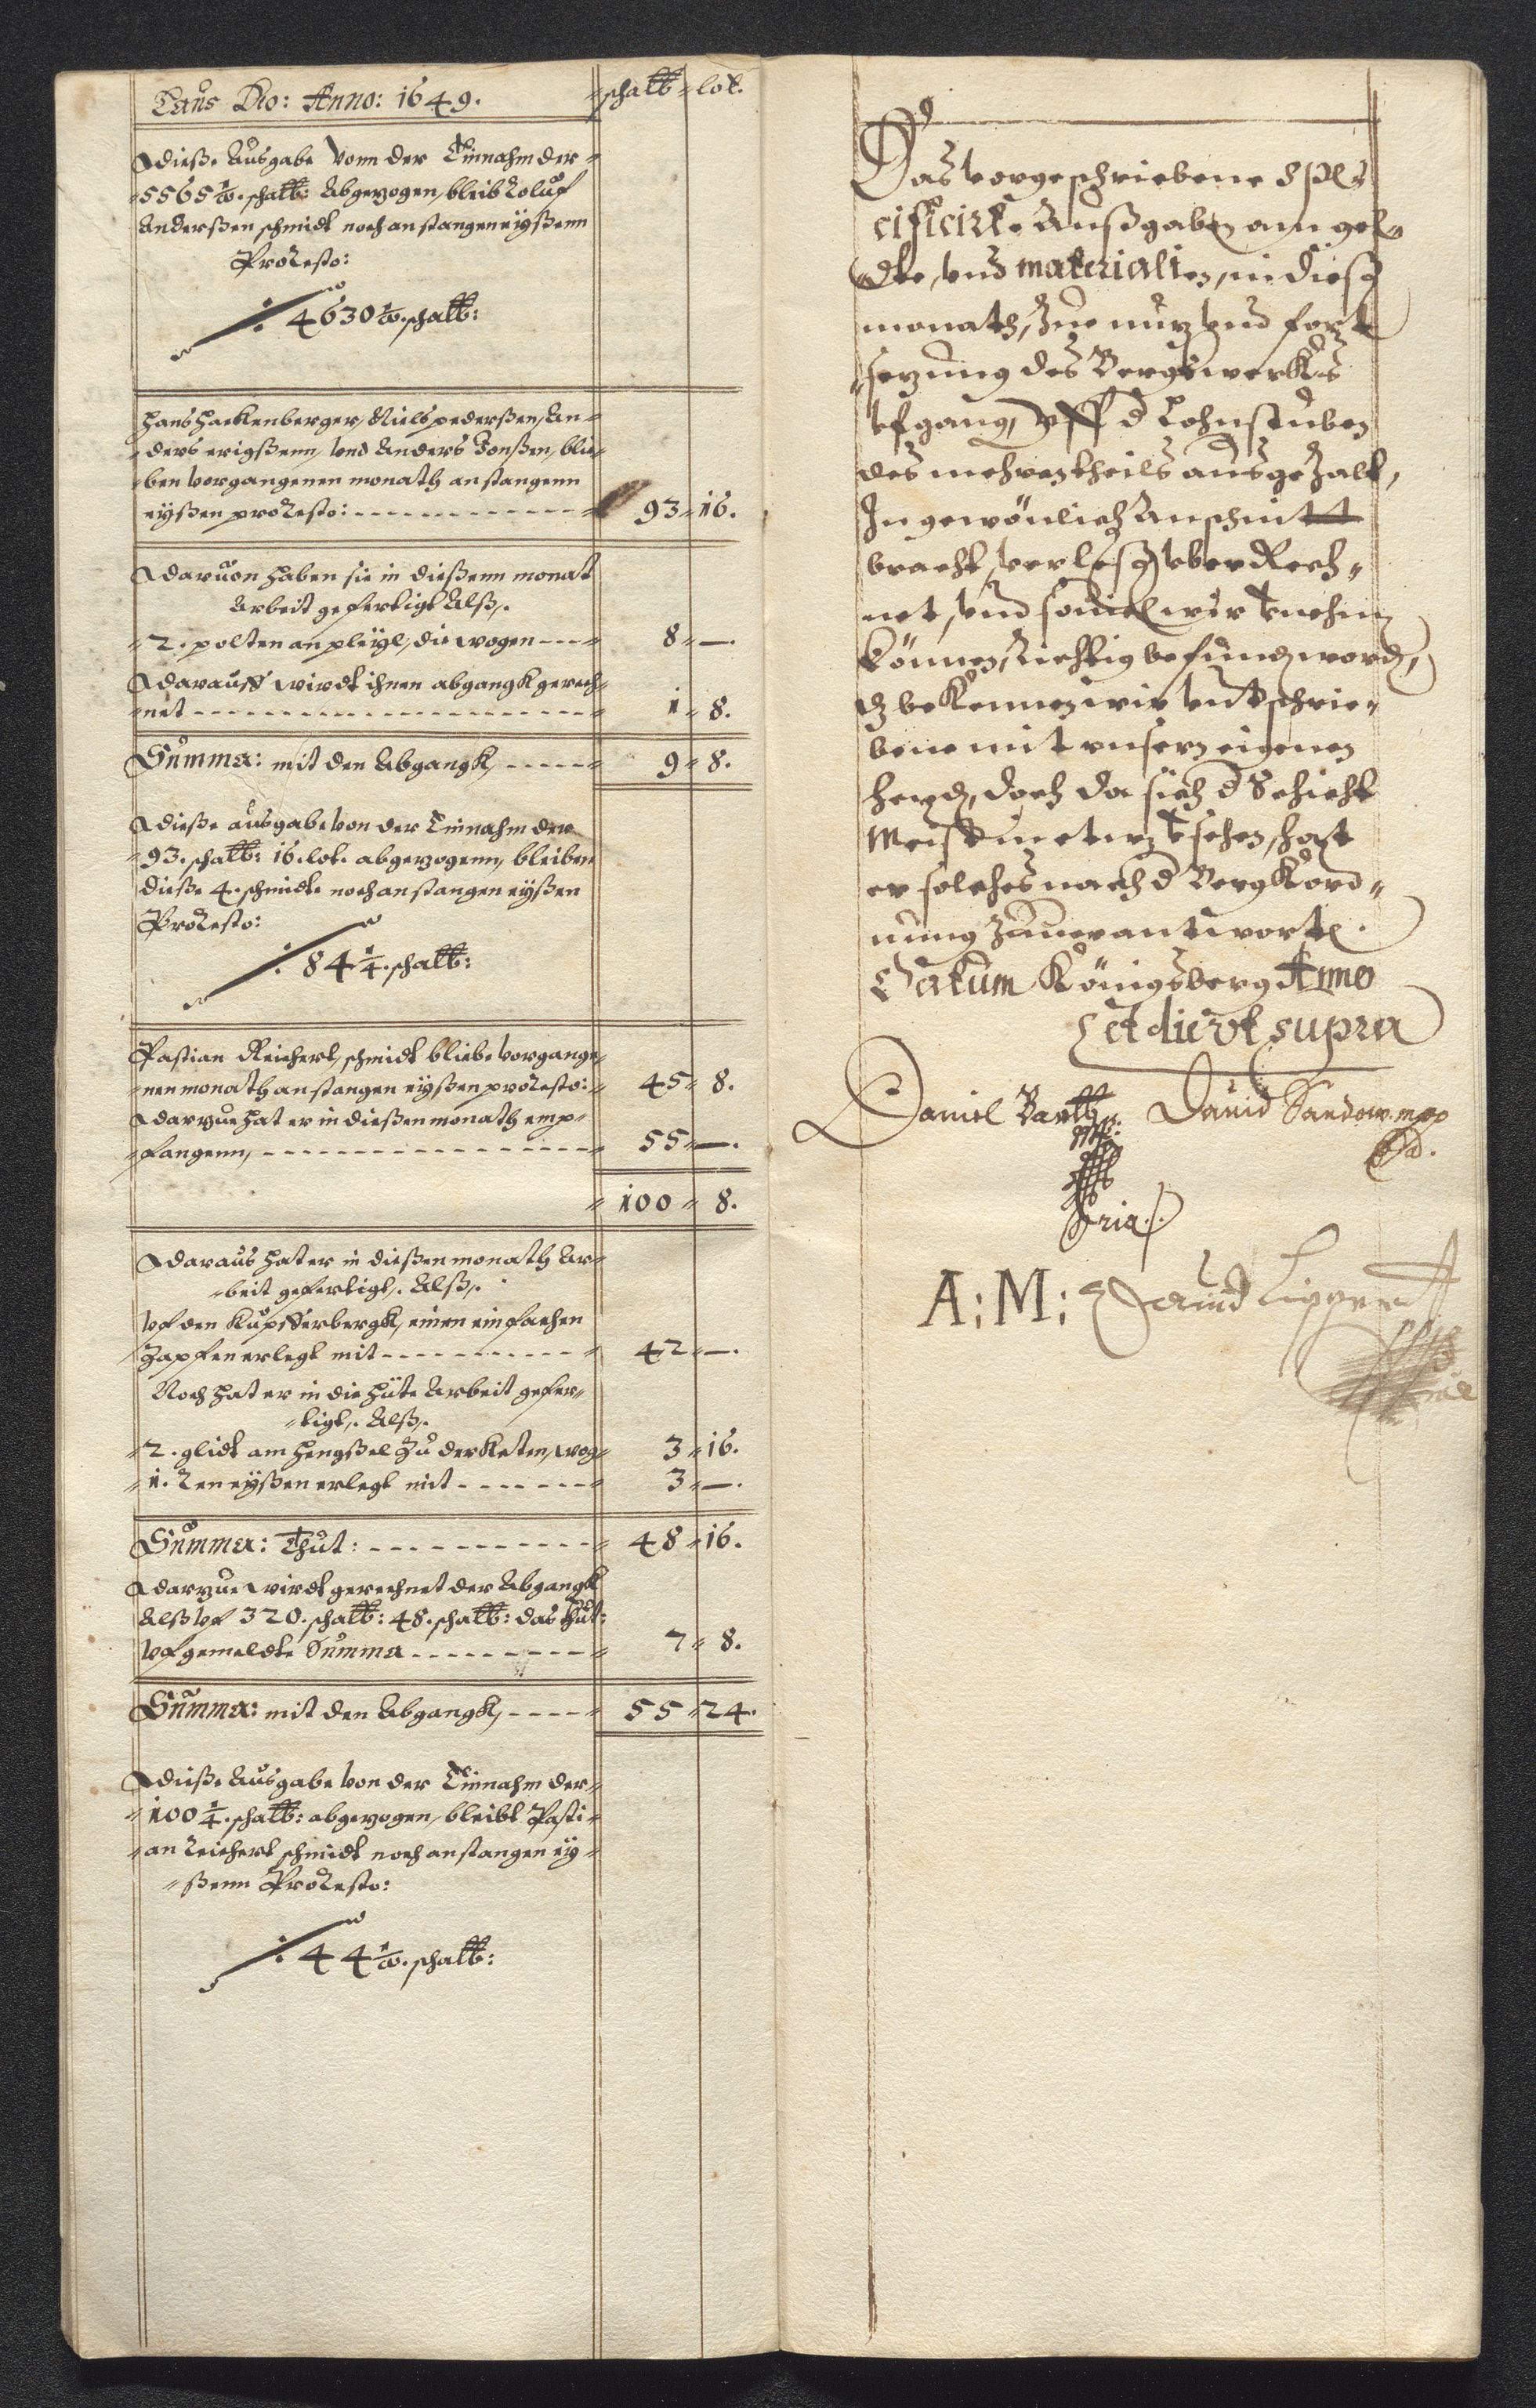 Laus Deo: Anno: 1649.
schaltt lot.
Diesse Ausgabe vonn der Einnahm der
5565 ½. schaltt: Abgezogen, bleib Roluf
Anderssen schmidt noch an stangen eyssenn
Pro Resto:
4630 ½. schaltt:
Hans Hackenberger, Niels pederssen, An-
ders erigssenn, vnd Anders Jonssen, blie-
ben vorgangenen monath an stangenn
eyssen pro Resto: 93 16.
Daruon haben sie in diessenn monat
Arbeit gefertigt Alss.
2. polten an pleyl, die wogen 8 —.
Darauss wirdt ihnen abgangk gerech-
net 1 8.
Summa: mit den Abgangk, 9 8.
Diesse ausgabe von der Einnahm der
93. schaltt: 16. lot. abgezogenn, bleiben
diesse 4. schmidte noch an stangen eyssen
Pro Resto:
84 ¼. schaltt:
Pastian Reichert, schmidt bliebe vorgange-
nen monath an stangen eyssen pro Resto: 45 8.
Darzue hat er in diessen monath emp-
fangenn, 55 —.
100 8.
Daraus hat er in diessen monath Ar-
beit gefertigt. Alss.
Vf den Kupfferbergk, einen einfachen
Zapfen erlegt mit 42 —.
Noch hat er in die Hüte Arbeit gefer-
tigt. Alss.
2. glidt am Hengssel zu der Keten, wog 3 16.
1. Ren eyssen erlegt mit 3 —.
Summa: Thut: 48 16.
Darzue wirdt gerechnet der Abgangk
Alss vf 320. schaltt: 48. schaltt: das thut:
vf gemeldte Summa 7 8.
Summa: mit den Abgangk, 55 24.
Diesse Ausgabe von der Einnahm der
100 ¼. schaltt: abgezogen, bleibt Pasti-
an Reichert schmidt noch an stangen ey-
ssenn Pro Resto:
44 ½. schaltt:
Das vorgeschriebene Spe-
cificirte Aussgaben ann gel-
dte, vnd materialien, in diesem
monath, zue nutz vnd fort
setzung des Bergwerkes
vfgang, vff d Lohnstuben
des mehrentheils ausgezalt,
In gewönlich Anschnitt
bracht, verlesen, vber Rech-
net, vnd souiel wir vernehmen
können, richtig befunden worden,
dz bekennen wir vnterschrie-
bene mit vnsern eigenen
henden, doch da sich d Schicht
Meister was versehen, hat
er solches nach d Bergk ord-
nung zuuerantworten.
Datum Königsberg Anno
et die vt supra
Daniel Barth David Sandow. mpp
A: M: David Lippert